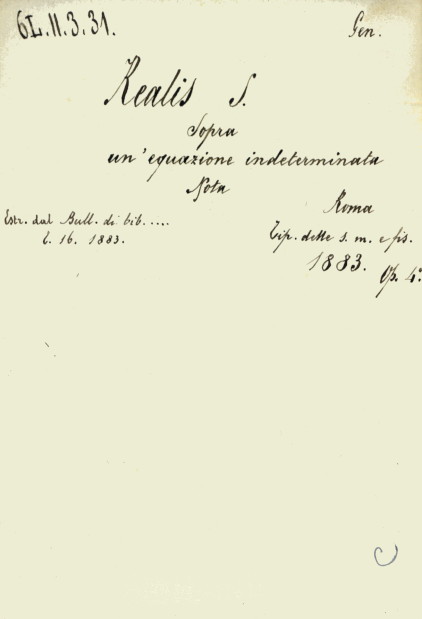 6L.11.3.31. Gen.
Realis S.
Sopra
un'equazione indeterminata
Nota
Roma
Estr. dal Bull. di bib. ....
t. 16. 1883.
Tip. delle s. m. e fis.
1883.
Op. 4°